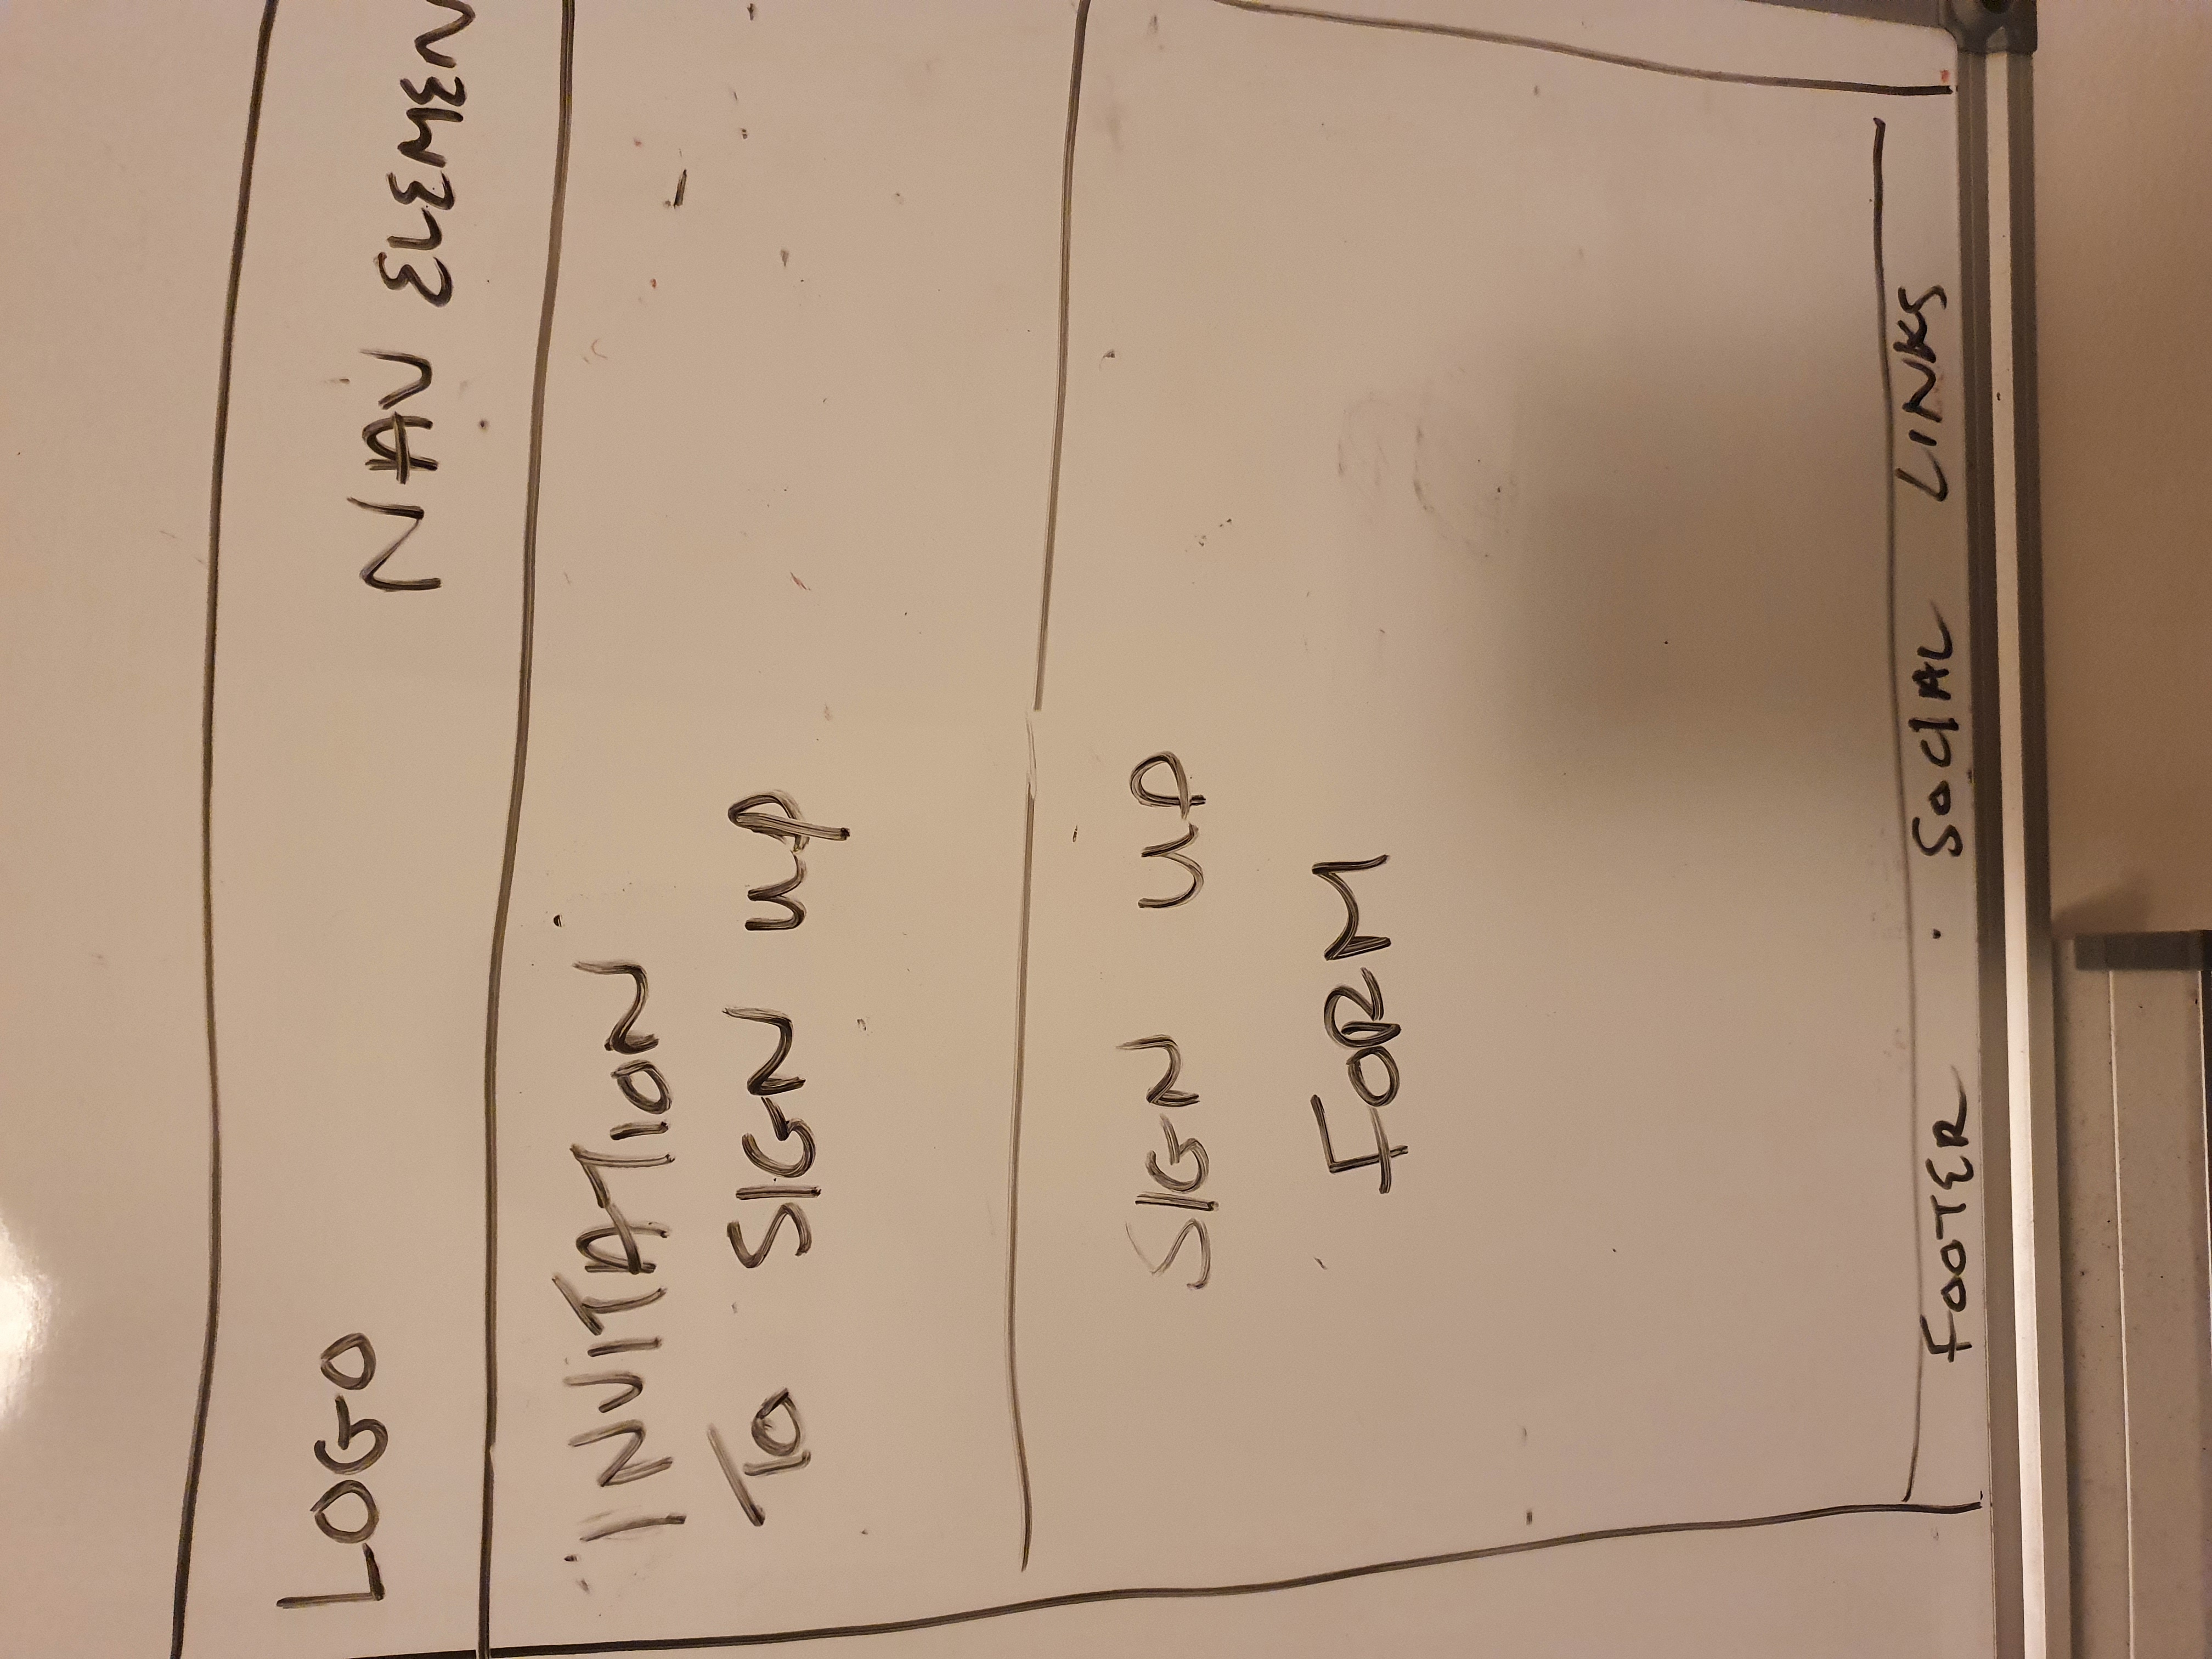 LOGO
NAV ELEMEN
INVITATION
TO SIGN UP
SIGN UP
FORM
FOOTER · SOCIAL LINKS